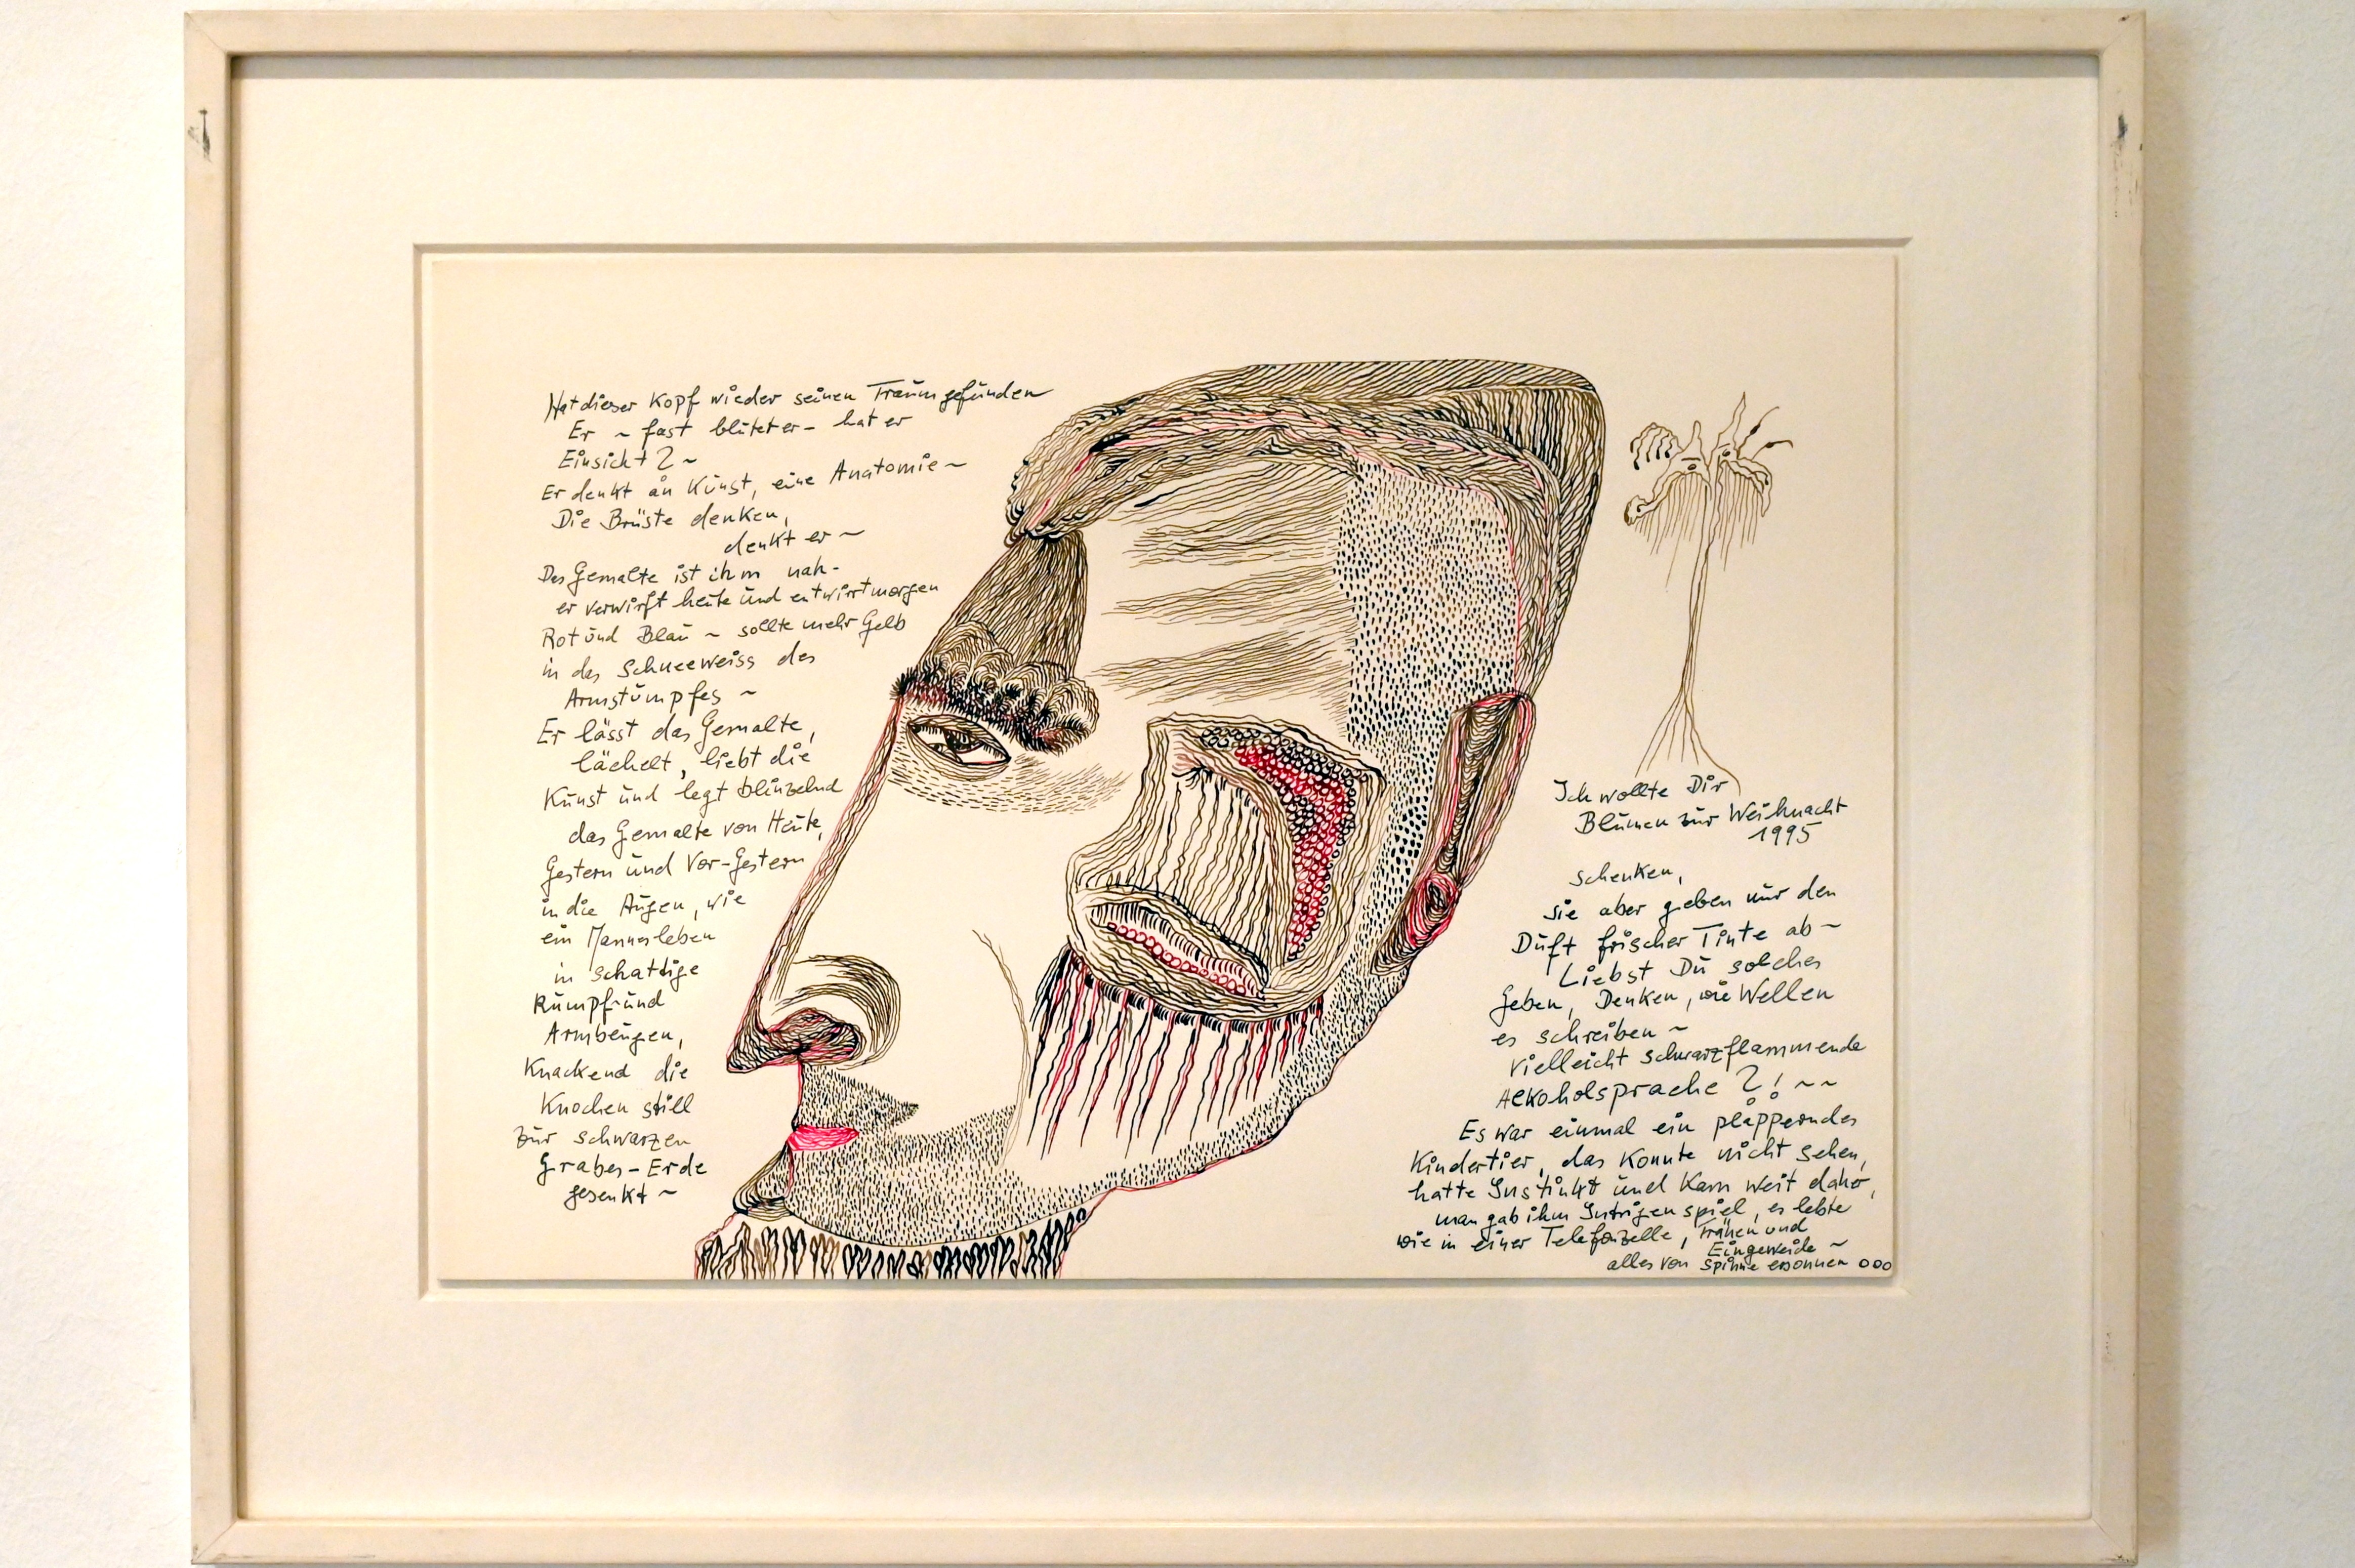 Hat dieser Kopf wieder seinen Traum gefunden
Er ~ fast blütet er - hat er
Einsicht? ~
Er denkt an Kunst, eine Anatomie ~
Die Brüste denken,
denkt er ~
Das Gemalte ist ihm nah -
er verwirft heute und entwirft morgen
Rot und Blau ~ sollte mehr Gelb
in das Schneeweiss des
Armstumpfes ~
Er lässt das Gemalte,
lächelt, liebt die
Kunst und legt blinzelnd
das Gemalte von Heute,
Gestern und Vor-Gestern
in die Augen, wie
ein Mannesleben
in schattige
Rumpf-und
Armbeugen,
Knackend die
Knochen still
zur schwarzen
Grabes-Erde
gesenkt ~
Ich wollte Dir
Blumen zur Weihnacht
1995
schenken,
sie aber geben nur den
Duft frischer Tinte ab ~
Liebst Du solches
Geben, Denken, wie Wellen
es schreiben ~
vielleicht schwarzflammende
Alkoholsprache?! ~~
Es war einmal ein plapperndes
Kindertier, das konnte nicht sehen,
hatte Instinkt und kam weit daher,
man gab ihm Intrigenspiel, es lebte
wie in einer Telefonzelle, Tränen und
Eingeweide ~
alles von Spinne ersonnen ooo